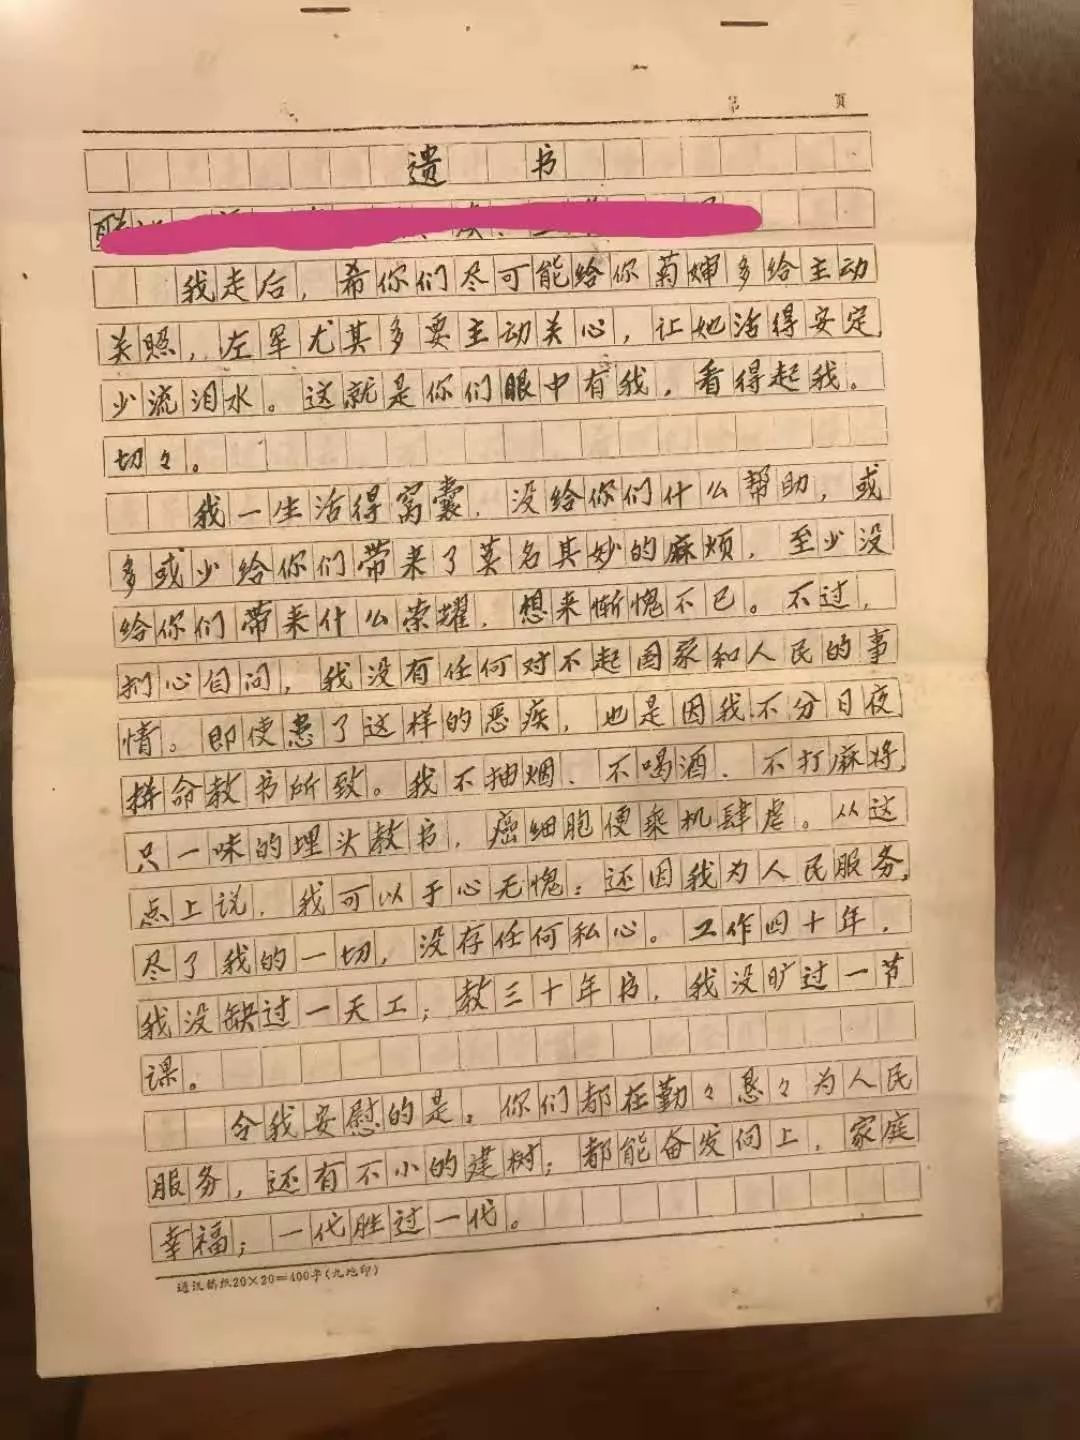 第 页
遗 书
我走后，希你们尽可能给你菊婶多给主动
关照，左军尤其多要主动关心，让她活得安定，
少流泪水。这就是你们眼中有我，看得起我。
切々。
我一生活得窝囊，没给你们什么帮助，或
多或少给你们带来了莫名其妙的麻烦，至少没
给你们带来什么荣耀，想来惭愧不已。不过，
扪心自问，我没有任何对不起国家和人民的事
情。即使患了这样的恶疾，也是因我不分日夜
拼命教书所致。我不抽烟、不喝酒、不打麻将，
只一味的埋头教书，癌细胞便乘机肆虐。从这
点上说，我可以于心无愧：还因我为人民服务，
尽了我的一切，没存任何私心。工作四十年，
我没缺过一天工；教三十年书，我没旷过一节
课。
令我安慰的是，你们都在勤々恳々为人民
服务，还有不小的建树；都能奋发向上，家庭
幸福；一代胜过一代。
通讯稿纸20×20=400字(九地印)